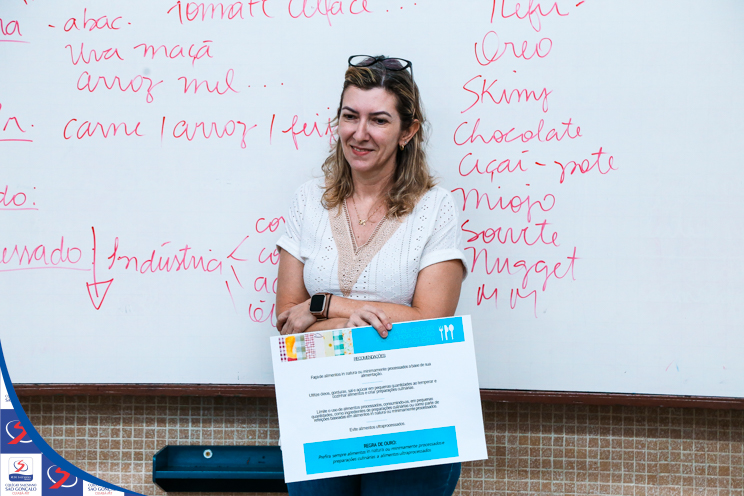 - abac. Tomate Alface ...
Uva maçã
arroz mel ...
carne | arroz |
Industria <
Refri
Oreo
Skimy
Chocolate
Açaí - pote
Miojo
Sorvete
Nugget
MM
RECOMENDAÇÕES
Faça de alimentos in natura ou minimamente processados a base de sua
alimentação.
Utilize óleos, gorduras, sal e açúcar em pequenas quantidades ao temperar e
cozinhar alimentos e criar preparações culinárias.
Limite o uso de alimentos processados, consumindo-os, em pequenas
quantidades, como ingredientes de preparações culinárias ou como parte de
refeições baseadas em alimentos in natura ou minimamente processados.
Evite alimentos ultraprocessados.
REGRA DE OURO
Prefira sempre alimentos in natura ou minimamente processados e
preparações culinárias a alimentos ultraprocessados.
SÃO GONÇALO